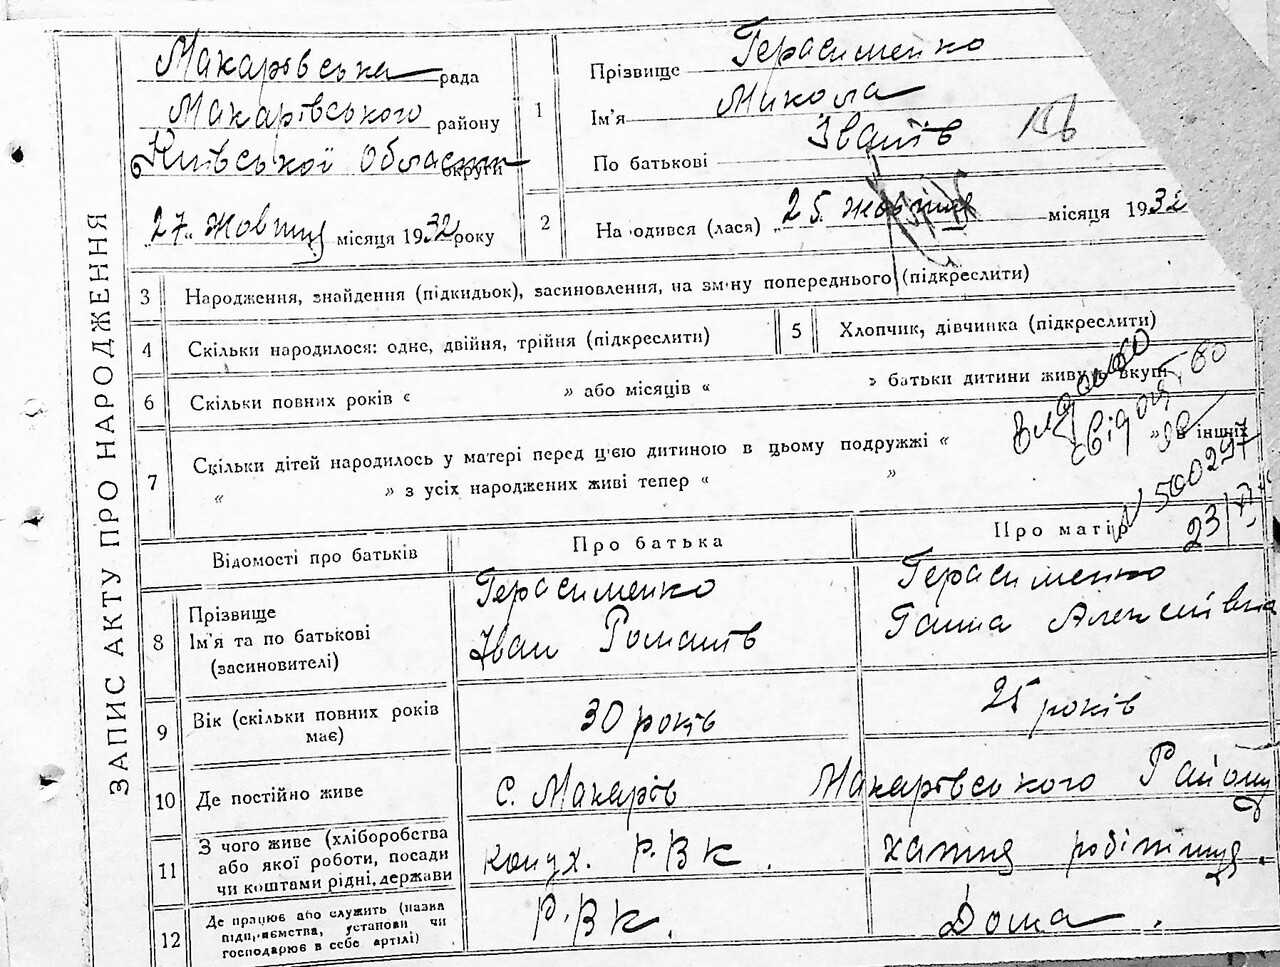 ЗАПИС АКТУ ПРО НАРОДЖЕННЯ
Макарівська рада
Макарівського району
Київської Області округи
„27„ Жовтня місяця 1932 року
1 Прізвище Герасименко
Ім'я Микола
По батькові Іванів
2 На одився (лася) „25. жовтня місяця 1932
3 Народження, знайдення (підкидьок), засиновлення, на зміну попереднього (підкреслити)
4 Скільки народилося: одне, двійня, трійня (підкреслити)
5 Хлопчик, дівчинка (підкреслити)
6 Скільки повних років « » або місяців « » батьки дитини живуть вкупі
7 Скільки дітей народилось у матері перед ц'єю дитиною в цьому подружжі « » в інших
« » з усіх народжених живі тепер « »
Видано
Свідоцтво
№ 500297
23/
Відомості про батьків Про батька Про матір
8 Прізвище Ім'я та по батькові (засиновителі)
Герасименко Іван Романів
Герасименко Ганна Алексіївна
9 Вік (скільки повних років має) 30 років 25 років
10 Де постійно живе с. Макарів Макарівського Району
11 З чого живе (хліборобства або якої роботи, посади чи коштами рідні, держави
конух. Р.В К. хатня робітниця.
12 Де працює або служить (назва підприємства, установи чи господарює в себе артілі)
Р.В К. Дома.